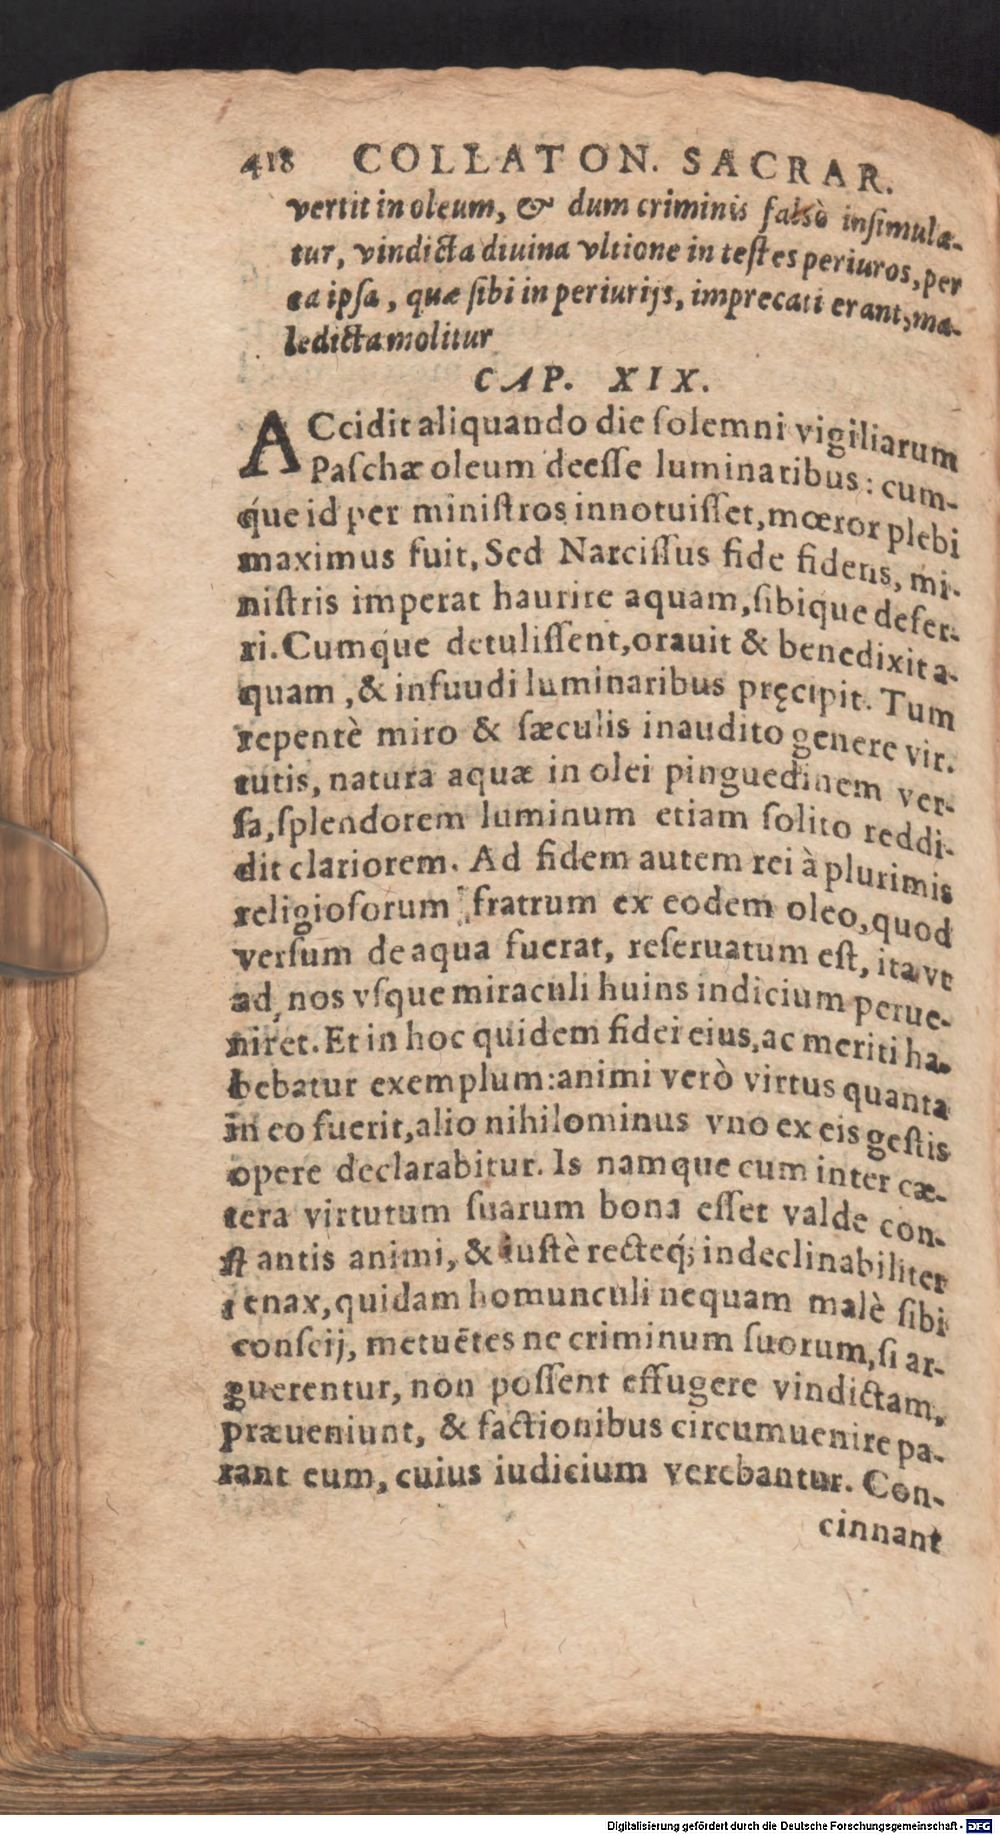 418 COLLATON. SACRAR.
vertit in oleum, & dum criminis falsò inſimula-
tur, vindicta diuina vltione in teſtes periuros, per
ea ipſa, quæ ſibi in periurijs, imprecati erant, ma-
ledicta molitur
CAP. XIX.
ACcidit aliquando die ſolemni vigiliarum
Paſchæ oleum deeſſe luminaribus: cum-
que id per miniſtros innotuiſſet, mœror plebi
maximus fuit, Sed Narciſſus fide fidens, mi-
niſtris imperat haurire aquam, ſibique defer-
ri. Cumque detuliſſent, orauit & benedixit a-
quam, & infuudi luminaribus pręcipit. Tum
repentè miro & ſæculis inaudito genere vir-
tutis, natura aquæ in olei pinguedinem ver-
ſa, ſplendorem luminum etiam ſolito reddi-
dit clariorem. Ad fidem autem rei à plurimis
religioſorum fratrum ex eodem oleo, quod
verſum de aqua fuerat, reſeruatum eſt, ita vt
ad nos vſque miraculi huins indicium perue-
niret. Et in hoc quidem fidei eius, ac meriti ha-
bebatur exemplum: animi verò virtus quanta
in eo fuerit, alio nihilominus vno ex eis geſtis
opere declarabitur. Is namque cum inter cæ-
tera virtutum ſuarum bona eſſet valde con-
ſt antis animi, & iuſtè recteq́; indeclinabiliter
tenax, quidam homunculi nequam malè ſibi
conſcij, metuētes ne criminum ſuorum, ſi ar-
guerentur, non poſſent effugere vindictam,
præueniunt, & factionibus circumuenire pa-
rant eum, cuius iudicium verebantur. Con-
cinnant
Digitalisierung gefördert durch die Deutsche Forschungsgemeinschaft - DFG